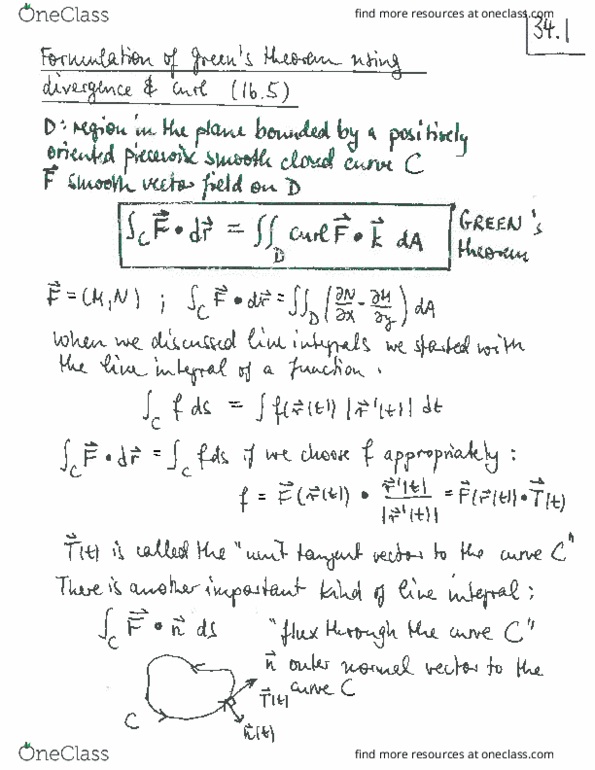 OneClass
find more resources at oneclass.com
34.1
Formulation of Green's theorem using
divergence & curl (16.5)
D: region in the plane bounded by a positively
oriented piecewise smooth closed curve C
F⃗ smooth vector field on D
∫_C F⃗ • dr⃗ = ∬_D curl F⃗ • k⃗ dA
GREEN's
theorem
F⃗ = (M,N) ; ∫_C F⃗ • dr⃗ = ∬_D (∂N/∂x - ∂M/∂y) dA
When we discussed line integrals we started with
the line integral of a function.
∫_C f ds = ∫ f(r⃗(t)) |r⃗'(t)| dt
∫_C F⃗ • dr⃗ = ∫_C f ds if we choose f appropriately:
f = F⃗(r⃗(t)) • r⃗'(t)/|r⃗'(t)| = F⃗(r⃗(t)) • T⃗(t)
T⃗(t) is called the "unit tangent vector to the curve C"
There is another important kind of line integral:
∫_C F⃗ • n⃗ ds "flux through the curve C"
n⃗ outer normal vector to the
curve C
T⃗(t)
C
n⃗(t)
OneClass
find more resources at oneclass.com